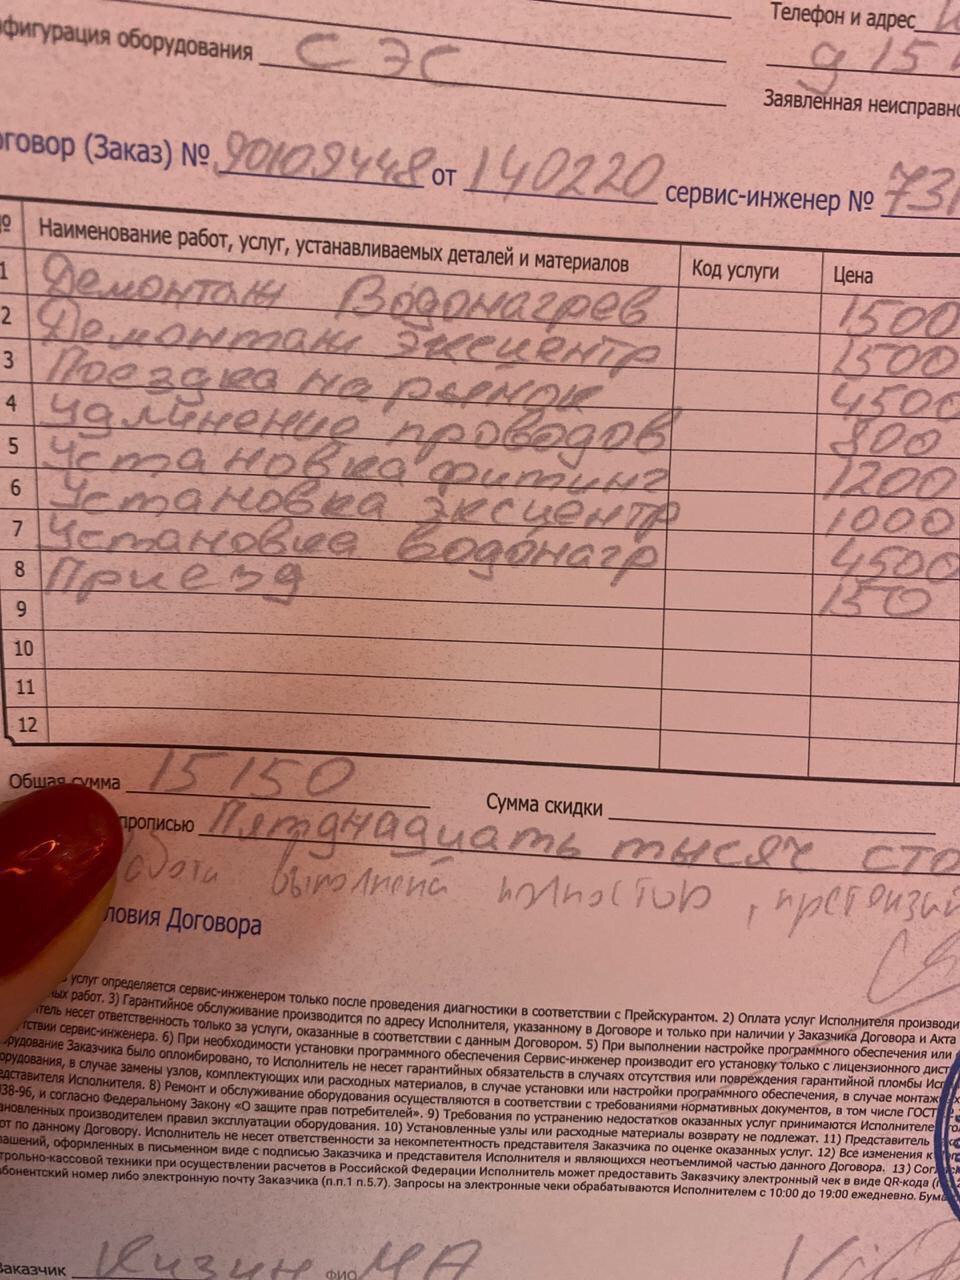 Телефон и адрес
нфигурация оборудования СЭС
д 15
Заявленная неисправно
оговор (Заказ) № 90109448 от 140220 сервис-инженер № 731
№ Наименование работ, услуг, устанавливаемых деталей и материалов Код услуги Цена
1 Демонтаж Водонагрев 1500
2 Демонтаж эксцентр 1500
3 Поездка на рынок 4500
4 Удлинение проводов 800
5 Установка фитинг 1200
6 Установка эксцентр 1000
7 Установка водонагр 4500
8 Приезд 150
9
10
11
12
Общая сумма 15150 Сумма скидки
прописью Пятднадцать тысяч сто
бота выполнена полностью, претензий
ловия Договора
услуг определяется сервис-инженером только после проведения диагностики в соответствии с Прейскурантом. 2) Оплата услуг Исполнителя производи
ных работ. 3) Гарантийное обслуживание производится по адресу Исполнителя, указанному в Договоре и только при наличии у Заказчика Договора и Акта
итель несет ответственность только за услуги, оказанные в соответствии с данным Договором. 5) При выполнении настройке программного обеспечения или
тствии сервис-инженера. 6) При необходимости установки программного обеспечения Сервис-инженер производит его установку только с лицензионного дист
орудование Заказчика было опломбировано, то Исполнитель не несет гарантийных обязательств в случаях отсутствия или повреждения гарантийной пломбы Исп
орудования, в случае замены узлов, комплектующих или расходных материалов, в случае установки или настройки программного обеспечения, в случае монтаж
едставителя Исполнителя. 8) Ремонт и обслуживание оборудования осуществляются в соответствии с требованиями нормативных документов, в том числе ГОСТ
938-96, и согласно Федеральному Закону «О защите прав потребителей». 9) Требования по устранению недостатков оказанных услуг принимаются Исполнителе
ановленных производителем правил эксплуатации оборудования. 10) Установленные узлы или расходные материалы возврату не подлежат. 11) Представитель
от по данному Договору. Исполнитель не несет ответственности за некомпетентность представителя Заказчика по оценке оказанных услуг. 12) Все изменения к
лашений, оформленных в письменном виде с подписью Заказчика и представителя Исполнителя и являющихся неотъемлемой частью данного Договора. 13) Согл
трольно-кассовой техники при осуществлении расчетов в Российской Федерации Исполнитель может предоставить Заказчику электронный чек в виде QR-кода
бонентский номер либо электронную почту Заказчика (п.п.1 п.5.7). Запросы на электронные чеки обрабатываются Исполнителем с 10:00 до 19:00 ежедневно. Бум
Заказчик Кизин ФИО МА